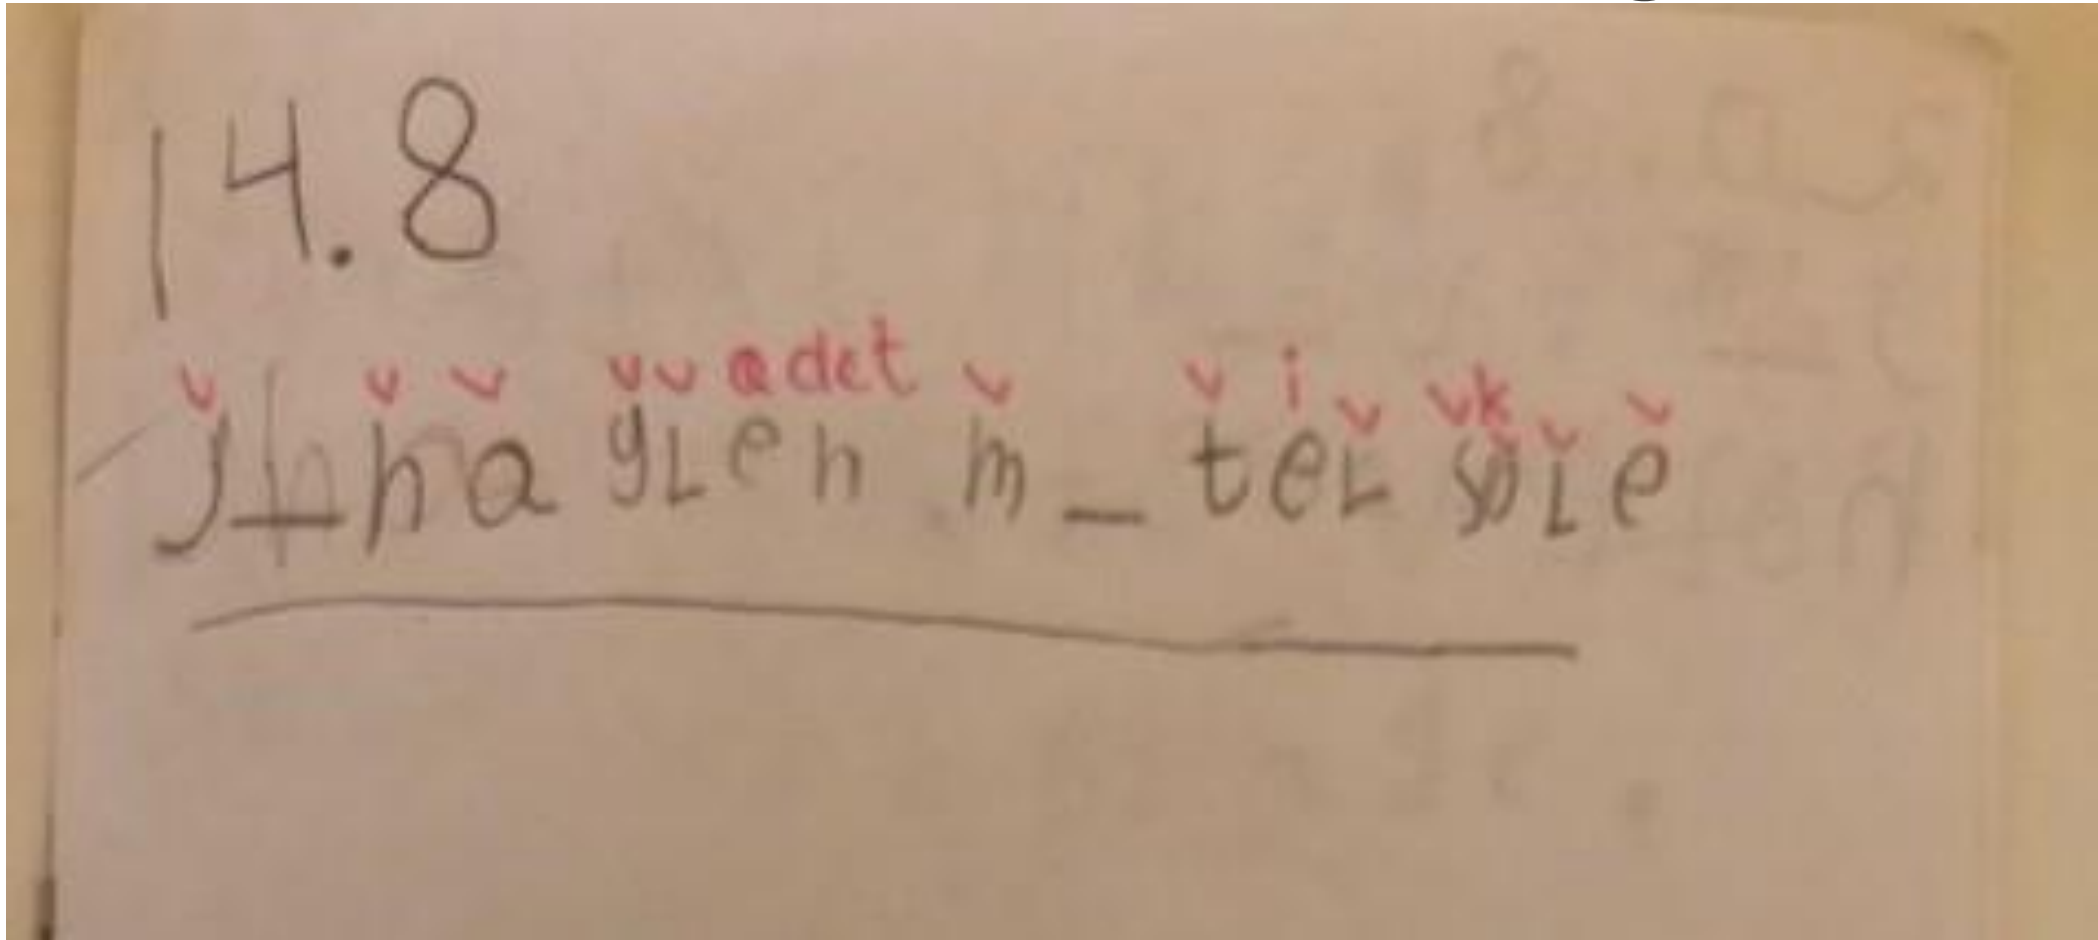 14.8
v v v v v a det v v i v v k v v
J_na gLen m_teL soLe